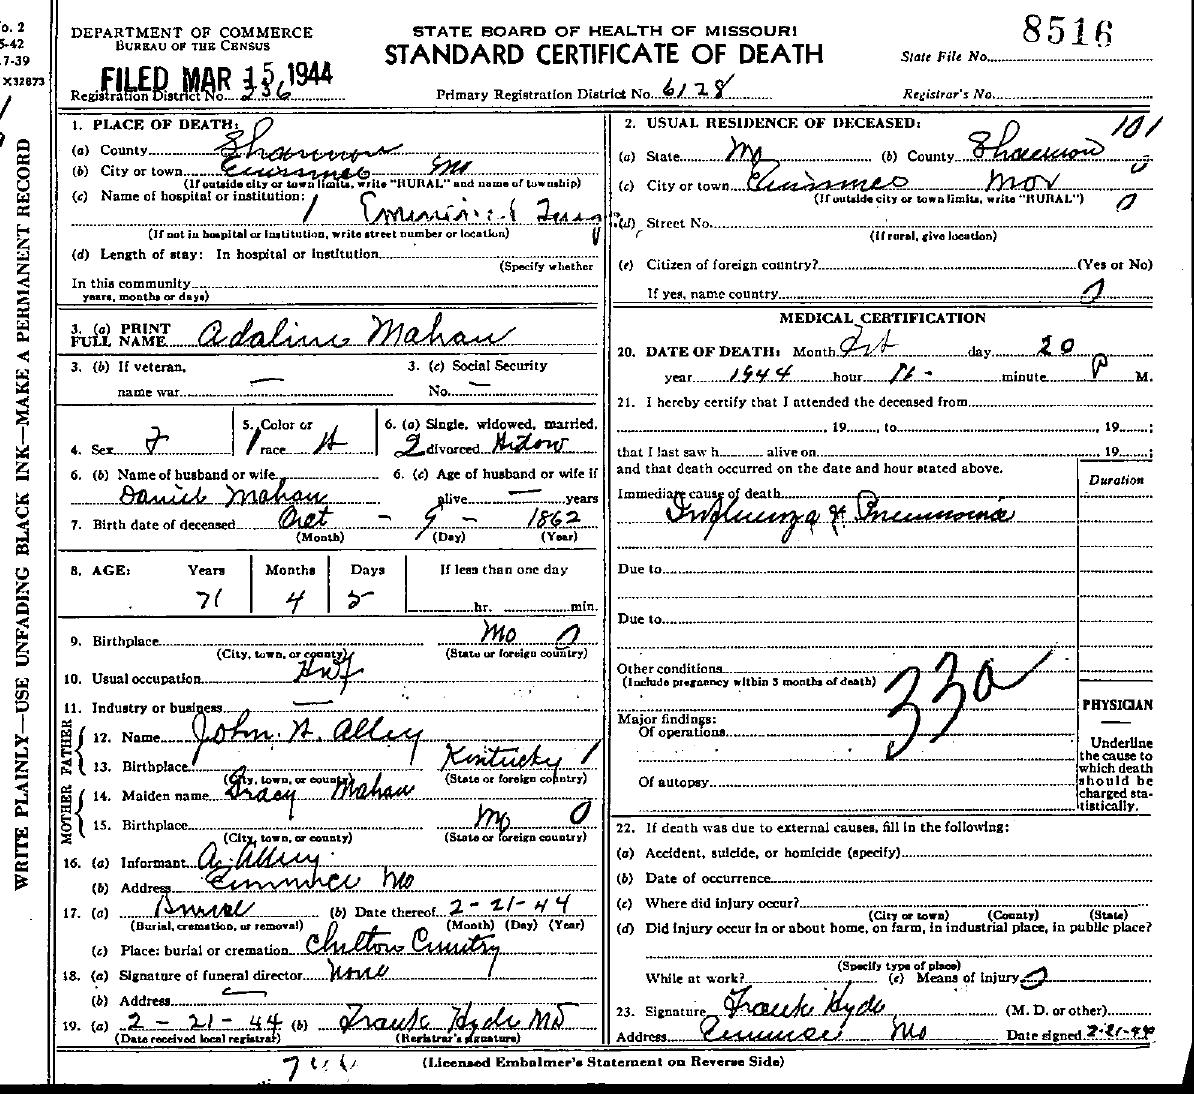 o. 2
5-42
7-39
X32873
WRITE PLAINLY—USE UNFADING BLACK INK—MAKE A PERMANENT RECORD
DEPARTMENT OF COMMERCE
BUREAU OF THE CENSUS
STATE BOARD OF HEALTH OF MISSOURI
STANDARD CERTIFICATE OF DEATH
8516
State File No.
FILED MAR 15 1944
Registration District No. 236
Primary Registration District No. 6128
Registrar's No.
1. PLACE OF DEATH:
(a) County Shannon
(b) City or town Mo
(If outside city or town limits, write "RURAL" and name of township)
(c) Name of hospital or institution:
(If not in hospital or institution, write street number or location)
(d) Length of stay: In hospital or institution
(Specify whether
In this community
years, months or days)
2. USUAL RESIDENCE OF DECEASED: 101
(a) State Mo (b) County Shannon
(c) City or town
(If outside city or town limits, write "RURAL") 0
(d) Street No.
(If rural, give location)
(e) Citizen of foreign country? (Yes or No)
If yes, name country
3. (a) PRINT FULL NAME Adaline Mahan
3. (b) If veteran, name war — 3. (c) Social Security No. —
4. Sex F 5. Color or race 6. (a) Single, widowed, married, divorced Widow
6. (b) Name of husband or wife Daniel Mahan 6. (c) Age of husband or wife if alive — years
7. Birth date of deceased Oct - 9 - 1862
(Month) (Day) (Year)
8. AGE: Years Months Days If less than one day
71 4 hr. min.
9. Birthplace Mo
(City, town, or county) (State or foreign country)
10. Usual occupation Hwf
11. Industry or business —
FATHER
12. Name John H. Alley
13. Birthplace Kentucky 1
(City, town, or county) (State or foreign country)
MOTHER
14. Maiden name Tracy Mahan
15. Birthplace Mo 0
(City, town, or county) (State or foreign country)
16. (a) Informant A. Alley
(b) Address Mo
17. (a) Burial (b) Date thereof 2-21-44
(Burial, cremation, or removal) (Month) (Day) (Year)
(c) Place: burial or cremation Chilton
18. (a) Signature of funeral director none
(b) Address —
19. (a) 2-21-44 (b) Frank Hyde MD
(Date received local registrar) (Registrar's signature)
MEDICAL CERTIFICATION
20. DATE OF DEATH: Month day 20
year 1944 hour minute P M.
21. I hereby certify that I attended the deceased from
, 19 , to , 19 ;
that I last saw h alive on , 19 ;
and that death occurred on the date and hour stated above.
Duration
Immediate cause of death
Influenza & Pneumonia
Due to
Due to
Other conditions
(Include pregnancy within 3 months of death)
33a
Major findings:
Of operations
Of autopsy
PHYSICIAN
—
Underline
the cause to
which death
should be
charged sta-
tistically.
22. If death was due to external causes, fill in the following:
(a) Accident, suicide, or homicide (specify)
(b) Date of occurrence
(c) Where did injury occur?
(City or town) (County) (State)
(d) Did injury occur in or about home, on farm, in industrial place, in public place?
(Specify type of place)
While at work? (e) Means of injury
23. Signature Frank Hyde (M. D. or other)
Address Mo Date signed 2-21-44
(Licensed Embalmer's Statement on Reverse Side)